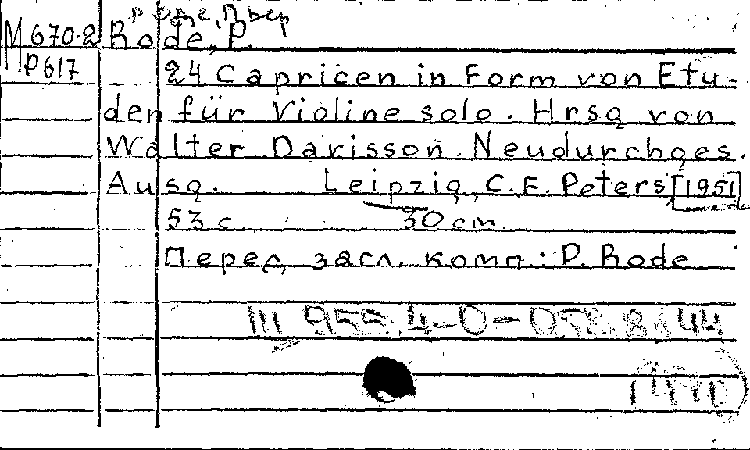 Роде, Пьер
М 670.2 Rode, P.
Р617 24 Capricen in Form von Etu-
den für Violine solo. Hrsg von
Walter Davisson. Neudurchges.
Ausg. Leipzig, C. F. Peters, [1951]
53 с. 30 cm.
Перед загл. комп.: P. Rode
Ш 955.4-0-